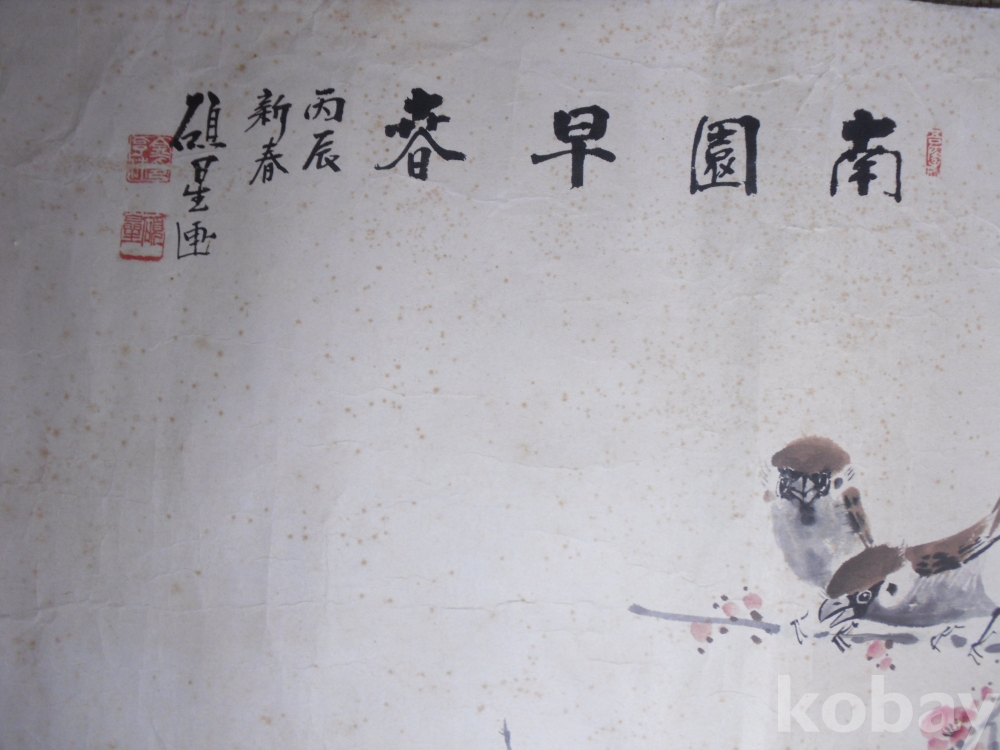 南園早春
丙辰
新春
碩星画
kobay